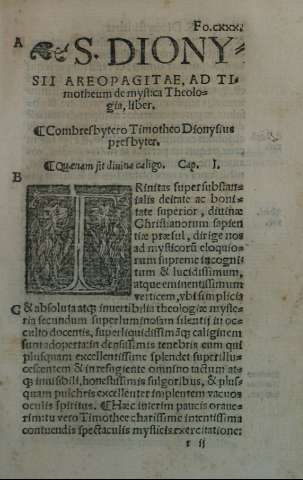 Fo.cxxx.
A
S. DIONY-
SII AREOPAGITAE, AD TI-
motheum de mystica Theolo-
gia, liber.
¶Combresbytero Timotheo Dionysius
presbyter.
¶Quænam sit diuina caligo. Cap. I.
B
TRinitas supersubstan-
tialis deitate ac boni-
tate superior, diuinæ
Christianorum sapien
tiæ præsul, dirige nos
ad mysticorũ eloquio-
rum supreme incogni
tum & lucidissimum,
atque eminentissimum
verticem, vbi simplicia
C & absoluta atq; inuertibilia theologiæ myste-
ria secundum superluminosam silentij in oc-
culto docentis, superlucidissimāq; caliginem
sunt adoperta: in densissimis tenebris eum qui
plusquam excellentissime splendet superillu-
cescentem & in refingiente omnino tactum at-
q; inuisibili, honestissimis fulgoribus, & plus-
quam pulchris excellenter implentem vacuos
oculis spiritus. ¶Hæc interim paucis oraue-
rim: tu vero Timothee charissime intentissima
contuendis spectaculis mysticis exercitatione:
r ij